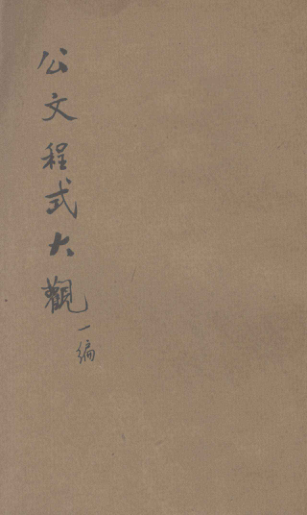 公文程式大觀
一編